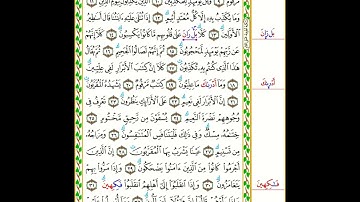 مَّرْقُومٌ ٩ وَيْلٌ يَوْمَئِذٍ لِّلْمُكَذِّبِينَ ١٠ الَّذِينَ يُكَذِّبُونَ بِيَوْمِ الدِّينِ ١١
وَمَا يُكَذِّبُ بِهِ إِلَّا كُلُّ مُعْتَدٍ أَثِيمٍ ١٢ إِذَا تُتْلَىٰ عَلَيْهِ ءَايَٰتُنَا قَالَ أَسَٰطِيرُ
الْأَوَّلِينَ ١٣ كَلَّا بَلْ رَانَ عَلَىٰ قُلُوبِهِم مَّا كَانُوا يَكْسِبُونَ ١٤ كَلَّا إِنَّهُمْ
عَن رَّبِّهِمْ يَوْمَئِذٍ لَّمَحْجُوبُونَ ١٥ ثُمَّ إِنَّهُمْ لَصَالُوا الْجَحِيمِ ١٦ ثُمَّ يُقَالُ
هَٰذَا الَّذِي كُنتُم بِهِ تُكَذِّبُونَ ١٧ كَلَّا إِنَّ كِتَٰبَ الْأَبْرَارِ لَفِي عِلِّيِّينَ ١٨
وَمَا أَدْرَىٰكَ مَا عِلِّيُّونَ ١٩ كِتَٰبٌ مَّرْقُومٌ ٢٠ يَشْهَدُهُ الْمُقَرَّبُونَ ٢١
إِنَّ الْأَبْرَارَ لَفِي نَعِيمٍ ٢٢ عَلَى الْأَرَائِكِ يَنظُرُونَ ٢٣ تَعْرِفُ فِي
وُجُوهِهِمْ نَضْرَةَ النَّعِيمِ ٢٤ يُسْقَوْنَ مِن رَّحِيقٍ مَّخْتُومٍ ٢٥
خِتَٰمُهُ مِسْكٌ وَفِي ذَٰلِكَ فَلْيَتَنَافَسِ الْمُتَنَٰفِسُونَ ٢٦ وَمِزَاجُهُ
مِن تَسْنِيمٍ ٢٧ عَيْنًا يَشْرَبُ بِهَا الْمُقَرَّبُونَ ٢٨ إِنَّ الَّذِينَ
أَجْرَمُوا كَانُوا مِنَ الَّذِينَ ءَامَنُوا يَضْحَكُونَ ٢٩ وَإِذَا مَرُّوا بِهِمْ
يَتَغَامَزُونَ ٣٠ وَإِذَا انقَلَبُوا إِلَىٰ أَهْلِهِمُ انقَلَبُوا فَٰكِهِينَ ٣١
بَل رَّانَ
أَدْرَىٰكَ
فَٰكِهِينَ